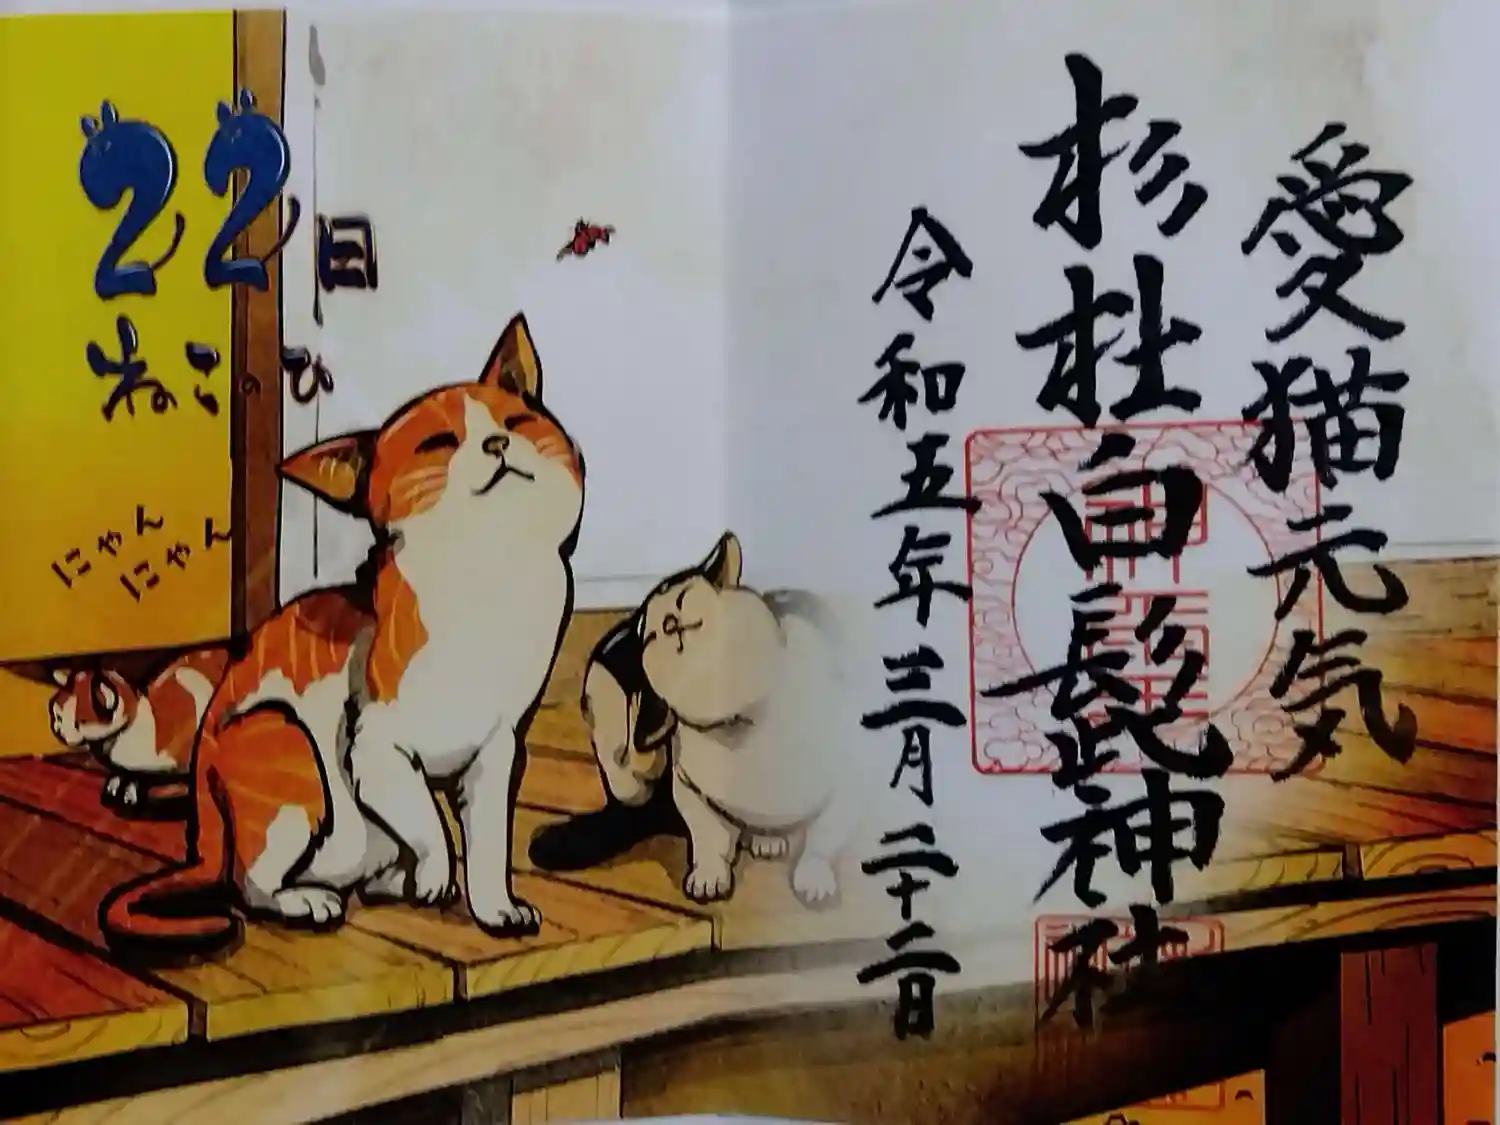 愛猫元気
杉杜白髭神社
令和五年三月二十二日
22日
ねこのひ
にゃん
にゃん